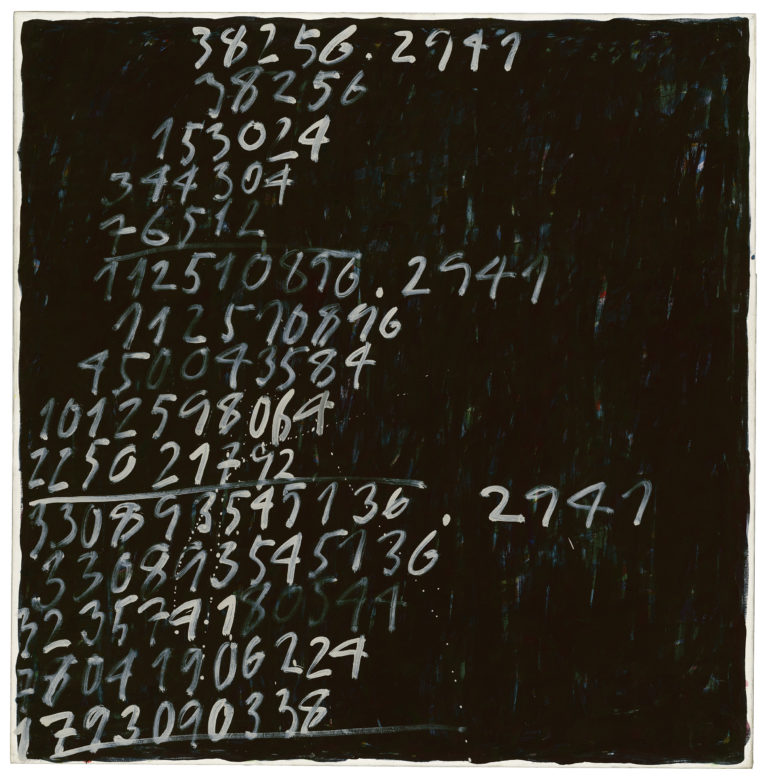 38256 . 2941
38256
153024
344304
76512
112510896 . 2941
112510896
450043584
1012598064
225021792
330893545136 . 2941
330893545136
323574180544
78041906224
1793090338